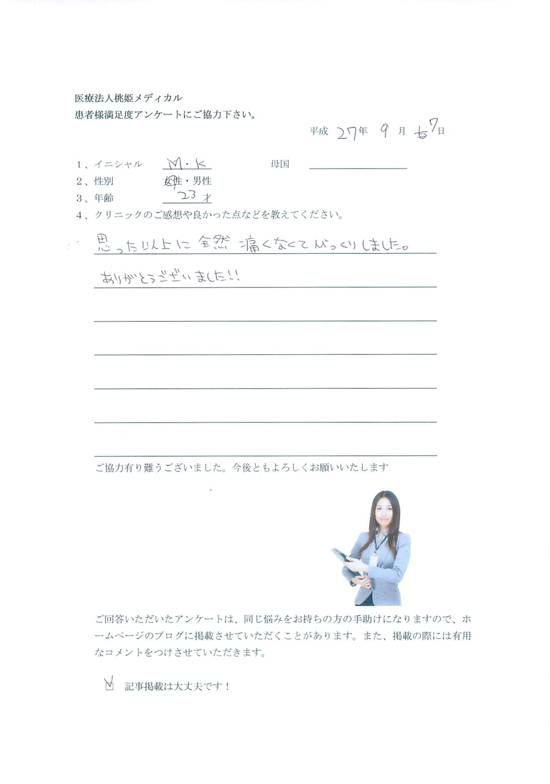 医療法人桃姫メディカル
患者様満足度アンケートにご協力下さい。
平成 27年 9 月 7日
1、イニシャル M・K 母国
2、性別 女性・男性
3、年齢 23 才
4、クリニックのご感想や良かった点などを教えてください。
思った以上に全然痛くなくてびっくりしました。
ありがとうございました!!
ご協力有り難うございました。今後ともよろしくお願いいたします
ご回答いただいたアンケートは、同じ悩みをお持ちの方の手助けになりますので、ホ
ームページのブログに掲載させていただくことがあります。また、掲載の際には有用
なコメントをつけさせていただきます。
記事掲載は大丈夫です！